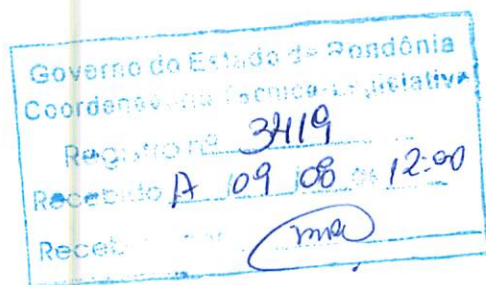 Governo do Estado de Rondônia
Coordenadoria Técnica Legislativa
Registro nº 3419
Recebido 09 08 12:00